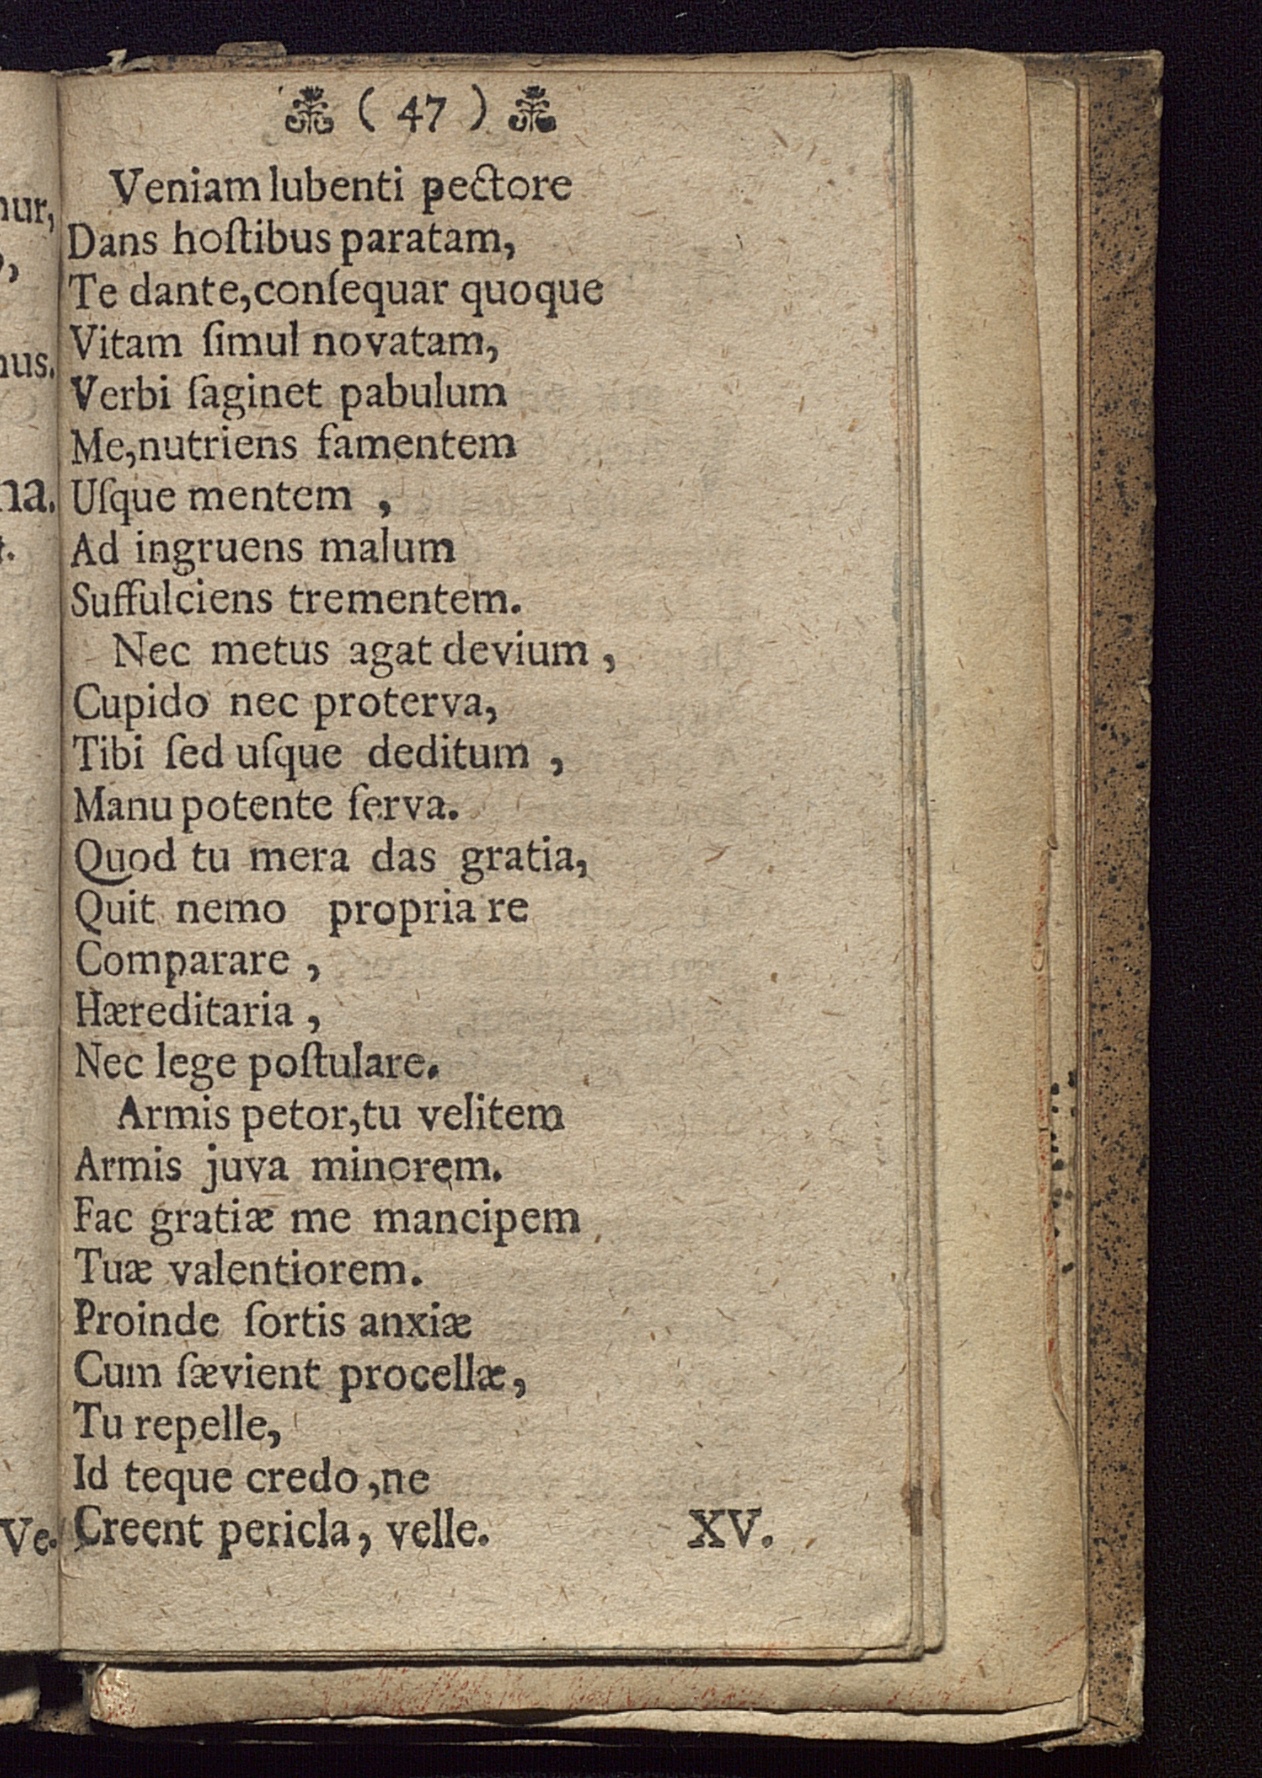 ( 47 )
Veniam lubenti pectore
Dans hoſtibus paratam,
Te dante,conſequar quoque
Vitam ſimul novatam,
Verbi ſaginet pabulum
Me,nutriens famentem
Uſque mentem ,
Ad ingruens malum
Suffulciens trementem.
Nec metus agat devium ,
Cupido nec proterva,
Tibi ſed uſque deditum ,
Manu potente ſerva.
Quod tu mera das gratia,
Quit nemo propria re
Comparare ,
Hæreditaria ,
Nec lege poſtulare.
Armis petor,tu velitem
Armis juva minorem.
Fac gratiæ me mancipem
Tuæ valentiorem.
Proinde ſortis anxiæ
Cum ſævient procellæ,
Tu repelle,
Id teque credo ,ne
Creent pericla, velle. XV.
Ve.